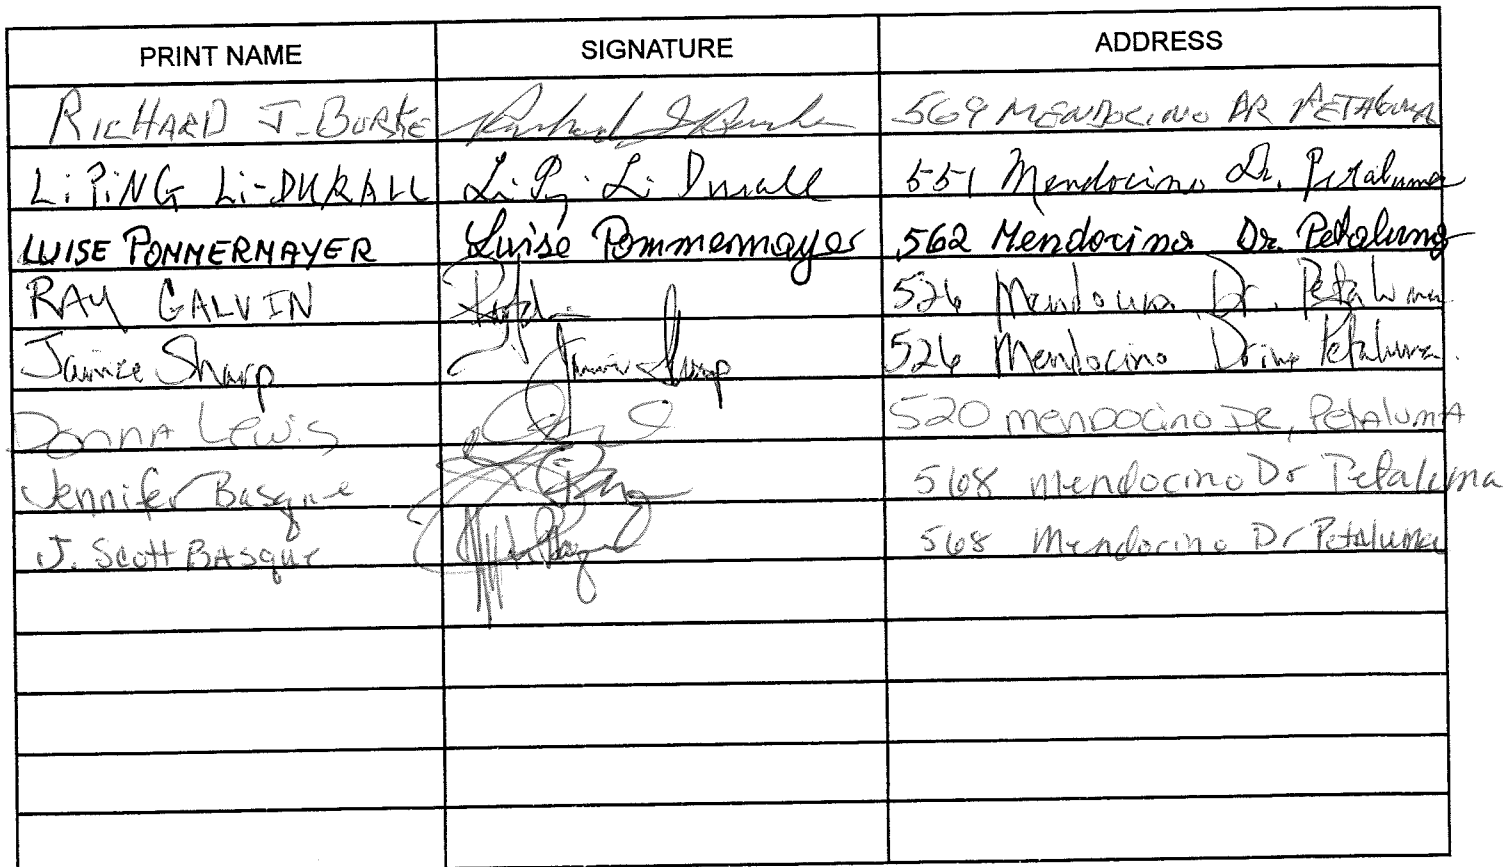 PRINT NAME SIGNATURE ADDRESS
RICHARD J. BURKE Richard J Burke 569 MENDOCINO DR PETALUMA
Li PiNG Li-DURALL Li Pi Li Durall 551 Mendocino Dr. Petaluma
LUISE POMMERMAYER Luise Pommermayer 562 Mendocino Dr. Petaluma
RAY GALVIN 526 Mendocino Dr. Petaluma
Janice Sharp Janice Sharp 526 Mendocino Drive Petaluma.
Donna Lewis 520 mendocino DR, PetalumA
Jennifer Basque 568 Mendocino Dr Petaluma
J. Scott BAsque 568 Mendocino Dr Petaluma